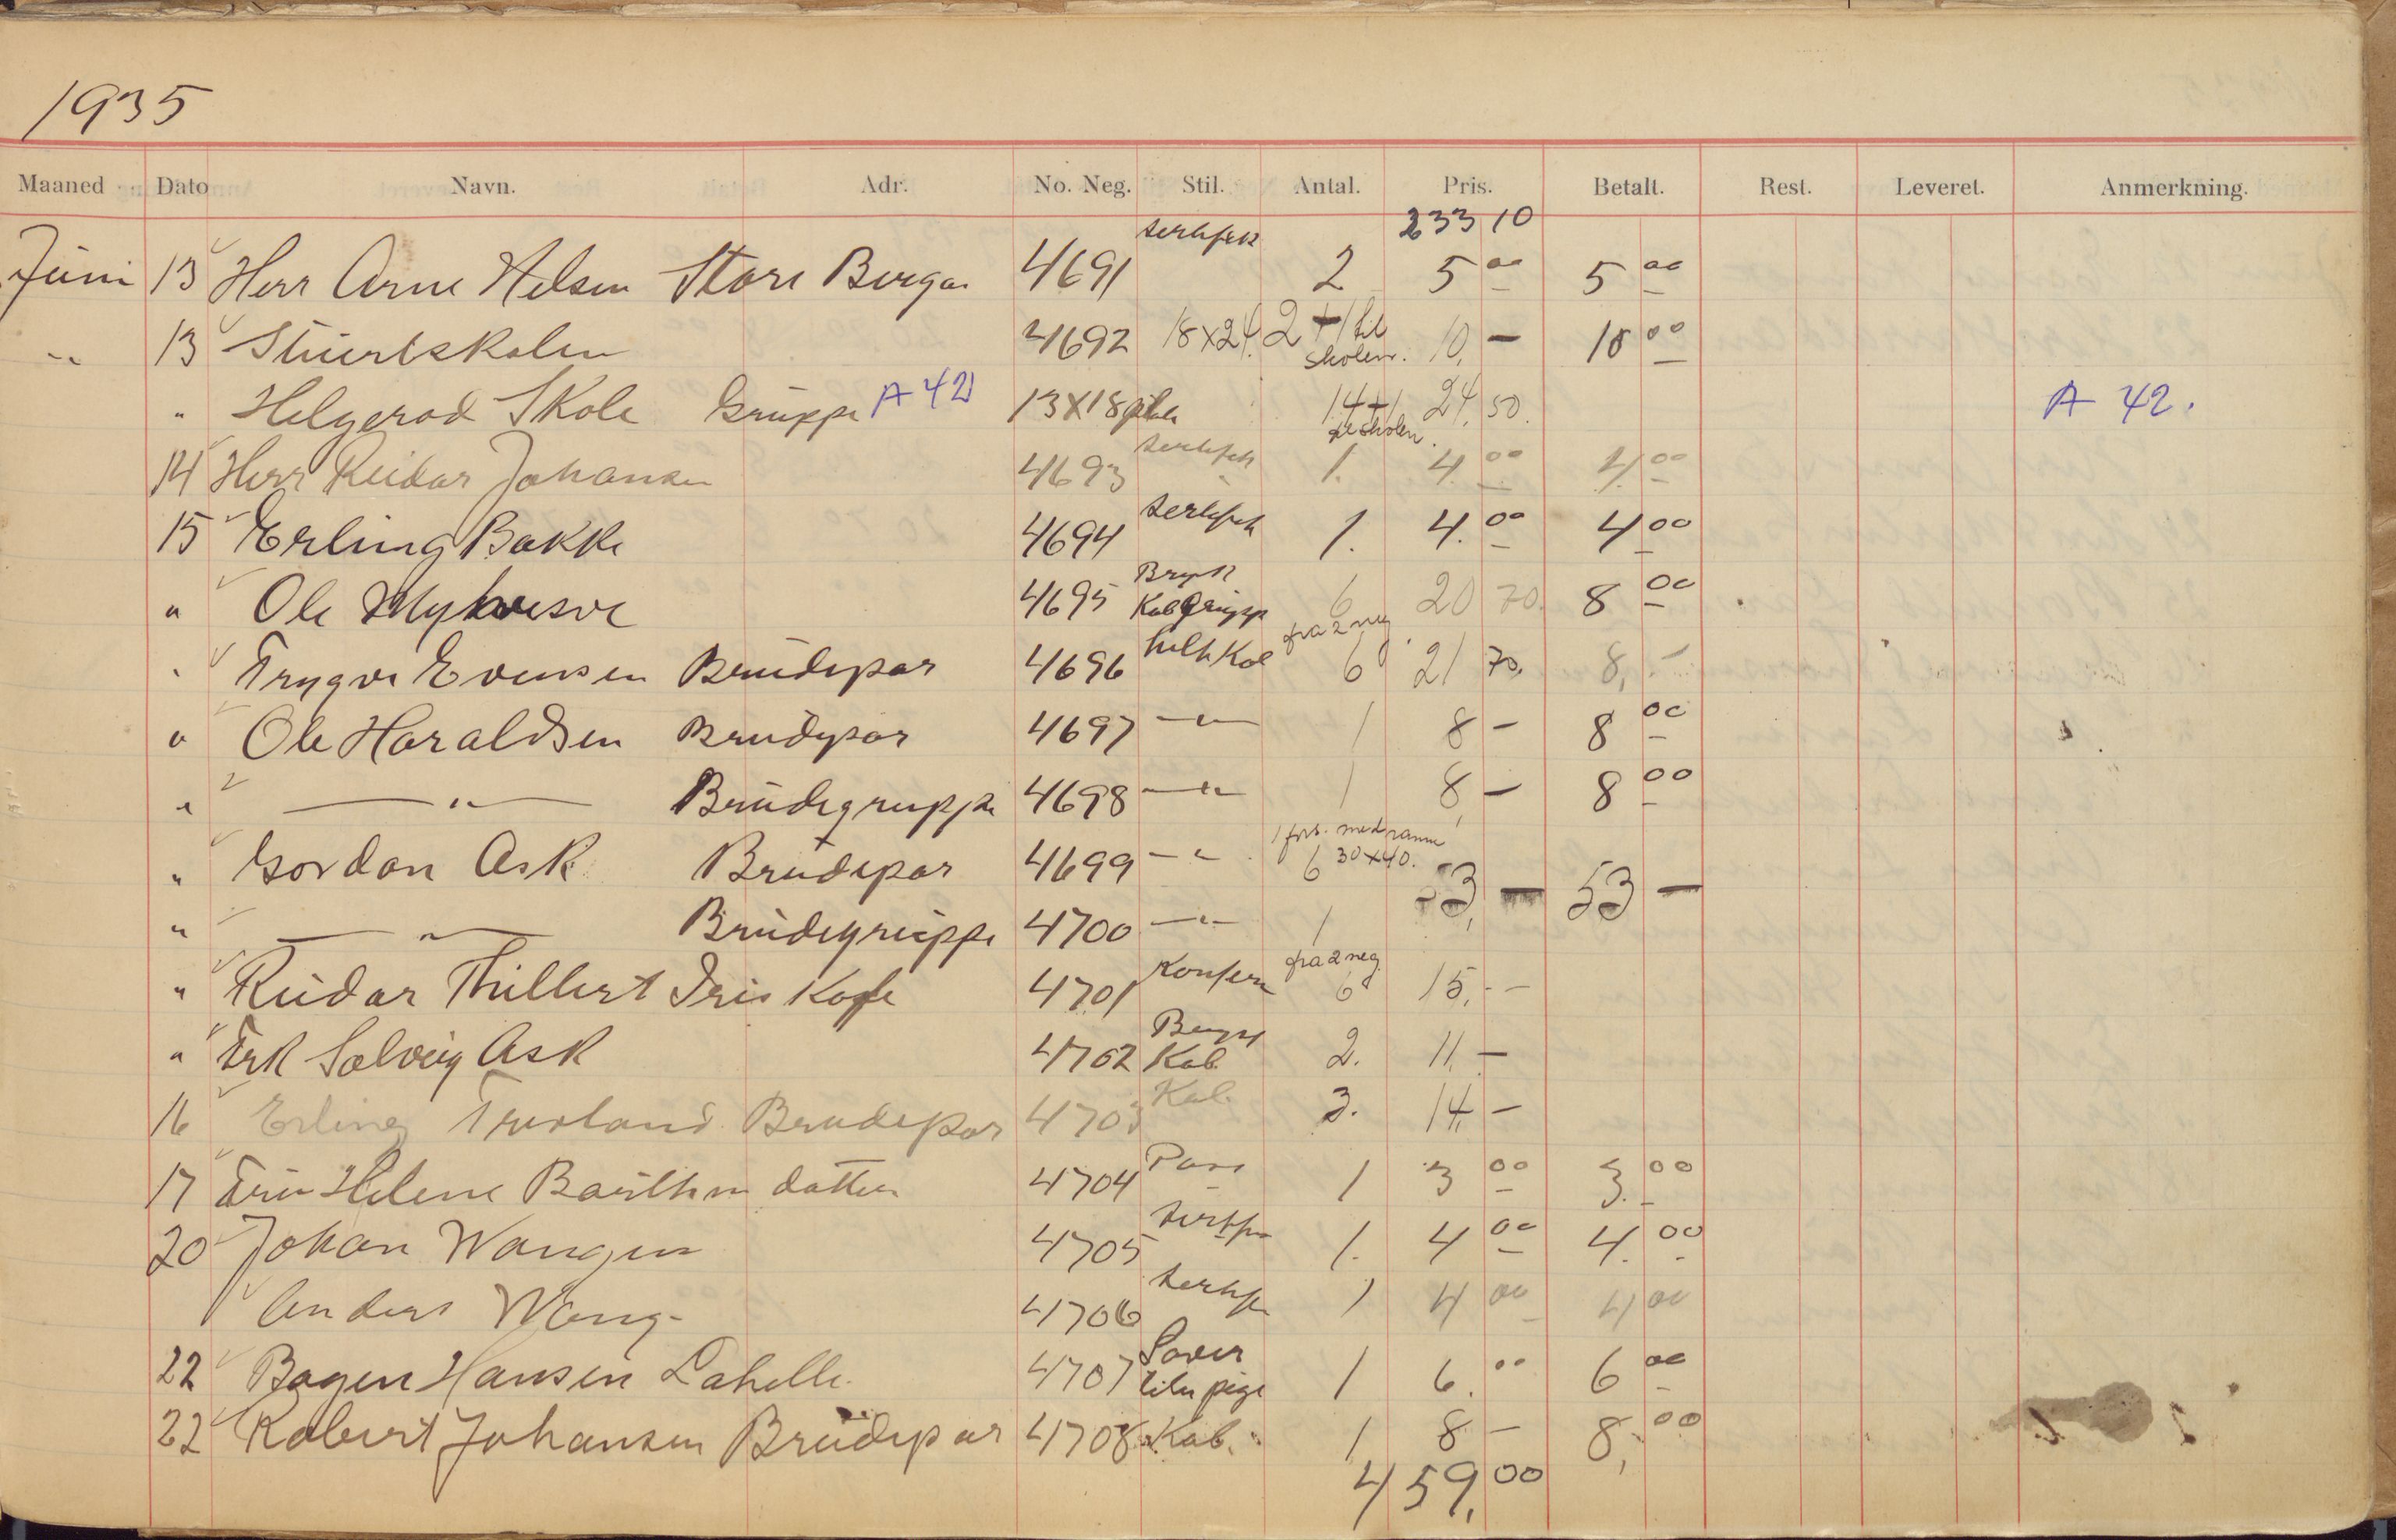 1935
Maaned Dato Navn. Adr. No. Neg. Stil. Antal. Pris. Betalt. Rest. Leveret. Anmerkning.
233 10
Juni 13 Herr Arne Nelsen Store Bergan 4691 sertifik 2 5 00 5 00
" 13 Stuertskolen 4692 18x24. 2 + 1 til skolen. 10, — 10 00
" Helgerod Skole Gruppe A 42 13x18 14+1 til skolen. 24, 50. A 42.
14 Herr Reidar Johansen 4693 1. 4. 00 4. 00
15 Erling Bakke 4694 1. 4. 00 4 00
" Ole 4695 Bryst Kab Grupp 6 20 70. 8 00
" Trygve Evensen Brudepar 4696 helt Kab fra 2 neg 6 21 70. 8, —
" Ole Haraldsen Brudepar 4697 —"— 1 8 — 8 00
" —"— Brudegruppe 4698 —"— 1 8, — 8 00
" Gordon Ask Brudepar 4699 —"— 1 fors. med ramme 6 30x40. 53, — 53 —
" —"— Brudegruppe 4700 —"— 1
" Reidar Thillert Iris Kafe 4701 Konferm fra 2 neg. 6 15, —
" Frk Solveig Ask 4702 Bryst Kab 2. 11, —
16 Erling Brudepar 4703 Kab. 3. 14, —
17 Fru Helene datter 4704 Pass 1 3 00 3. 00
20 Johan Wangen 4705 1. 4 00 4. 00
Anders Wang 4706 1 4 00 4 00
22 Bagen Hansen Lahelle. 4707 liln pige 1 6. 00 6 00
22 Robert Johansen Brudepar 4708 Kab. 1 8 — 8, 00
459,00